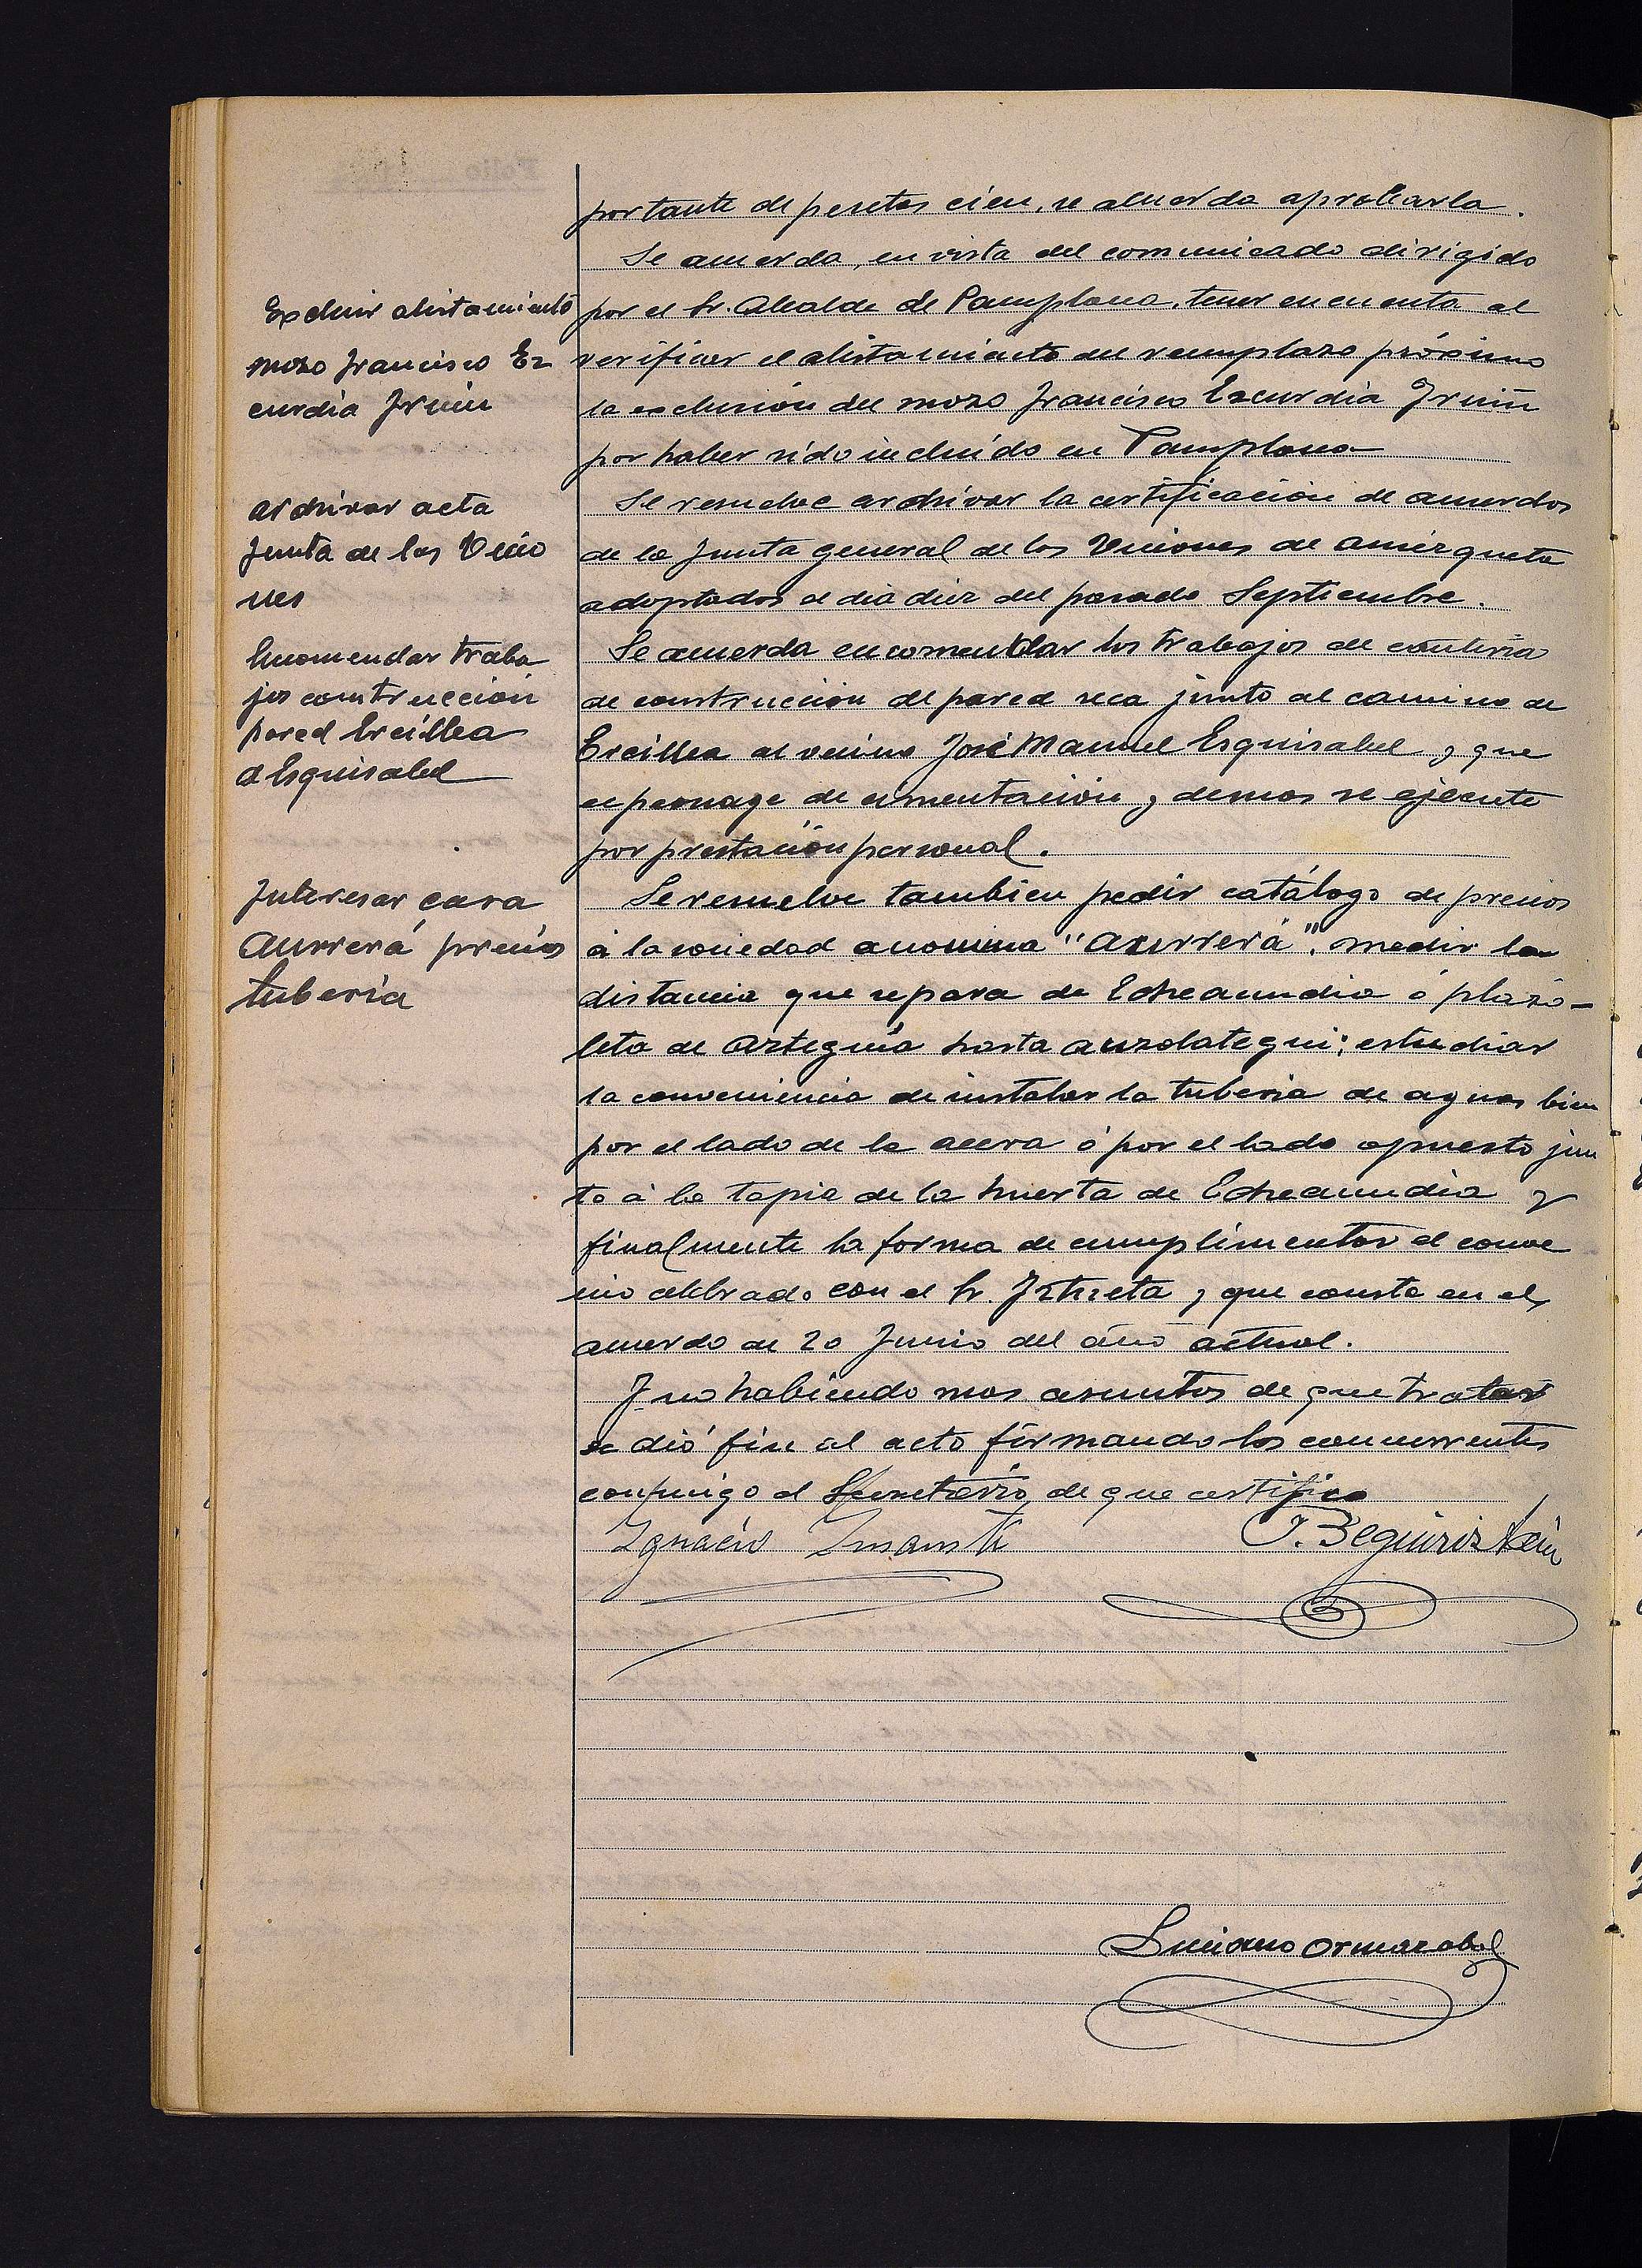 portante de pesetas cien, se acuerda aprobarla.
Se acuerda, en vista del comunicado dirigido
Excluir alistamiento
mozo Francisco Ez
curdia Irriñ
por el Sr. Alcalde de Pamplona, tener en cuenta al
verificar el alistamiento del reemplazo próximo
la exclusión del mozo Francisco Ezcurdia Irriñ
por haber sido incluído en Pamplona
archivar acta
Junta de las Unio
nes
Se resuelve archivar la certificación de acuerdos
de la Junta general de las Uniones de Amézqueta
adoptados el dia diez del pasado Septiembre.
Encomendar traba
jos construcción
pared Ercillea
a Esquisabel
Se acuerda encomendar los trabajos de cantería
de construcción de pared seca junto al camino de
Ercillea al vecino José Manuel Esquisabel y que
el peonage de cimentación y demas se ejecute
por prestación personal.
Interesar casa
Aurrerá precios
tuberia
Se resuelve tambien pedir catálogo de precios
á la sociedad anonima "Aurrerá", medir la
distancia que separa de Echeaundia ó plazo-
leta de Arteguia hasta Auzolategui; estudiar
la conveniencia de instalar la tuberia de aguas bien
por el lado de la acera ó por el lado opuesto jun
to á la tapia de la huerta de Echeaundia y
finalmente la forma de cumplimentar el conve
nio celebrado con el Sr. Iztueta y que consta en el
acuerdo de 20 Junio del año actual.
Y no habiendo mas asuntos de que tratar
se dió fin al acto firmando los concurrentes
conmigo el Secretario, de que certifico
Ignacio
J. Beguiristain
Luciano Ormazabal